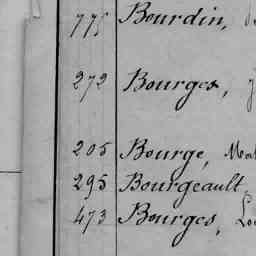 775 Bourdin,
272 Bourges,
205 Bourge, Mat
295 Bourgeault,
473 Bourges, Lou